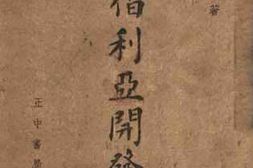 著
伯利亞開發
正中書局